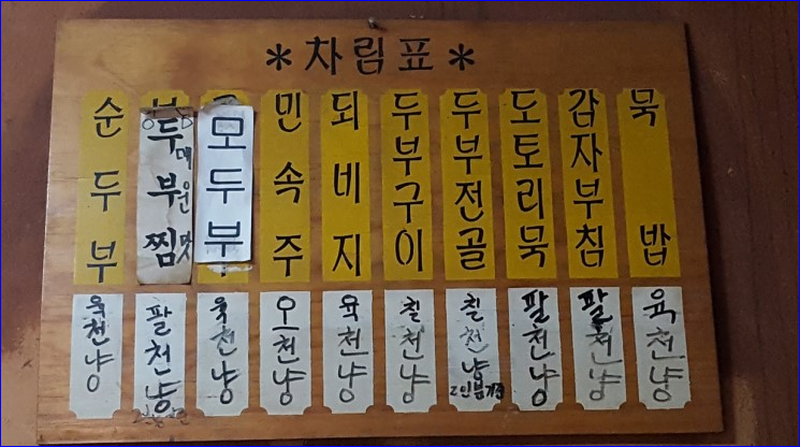 *차림표*
순두부
두부찜
매운맛
모두부
민속주
되비지
두부구이
두부전골
도토리묵
감자부침
묵밥
육천냥
팔천냥
육천냥
오천냥
육천냥
칠천냥
칠천냥
2인분기준
팔천냥
팔천냥
육천냥